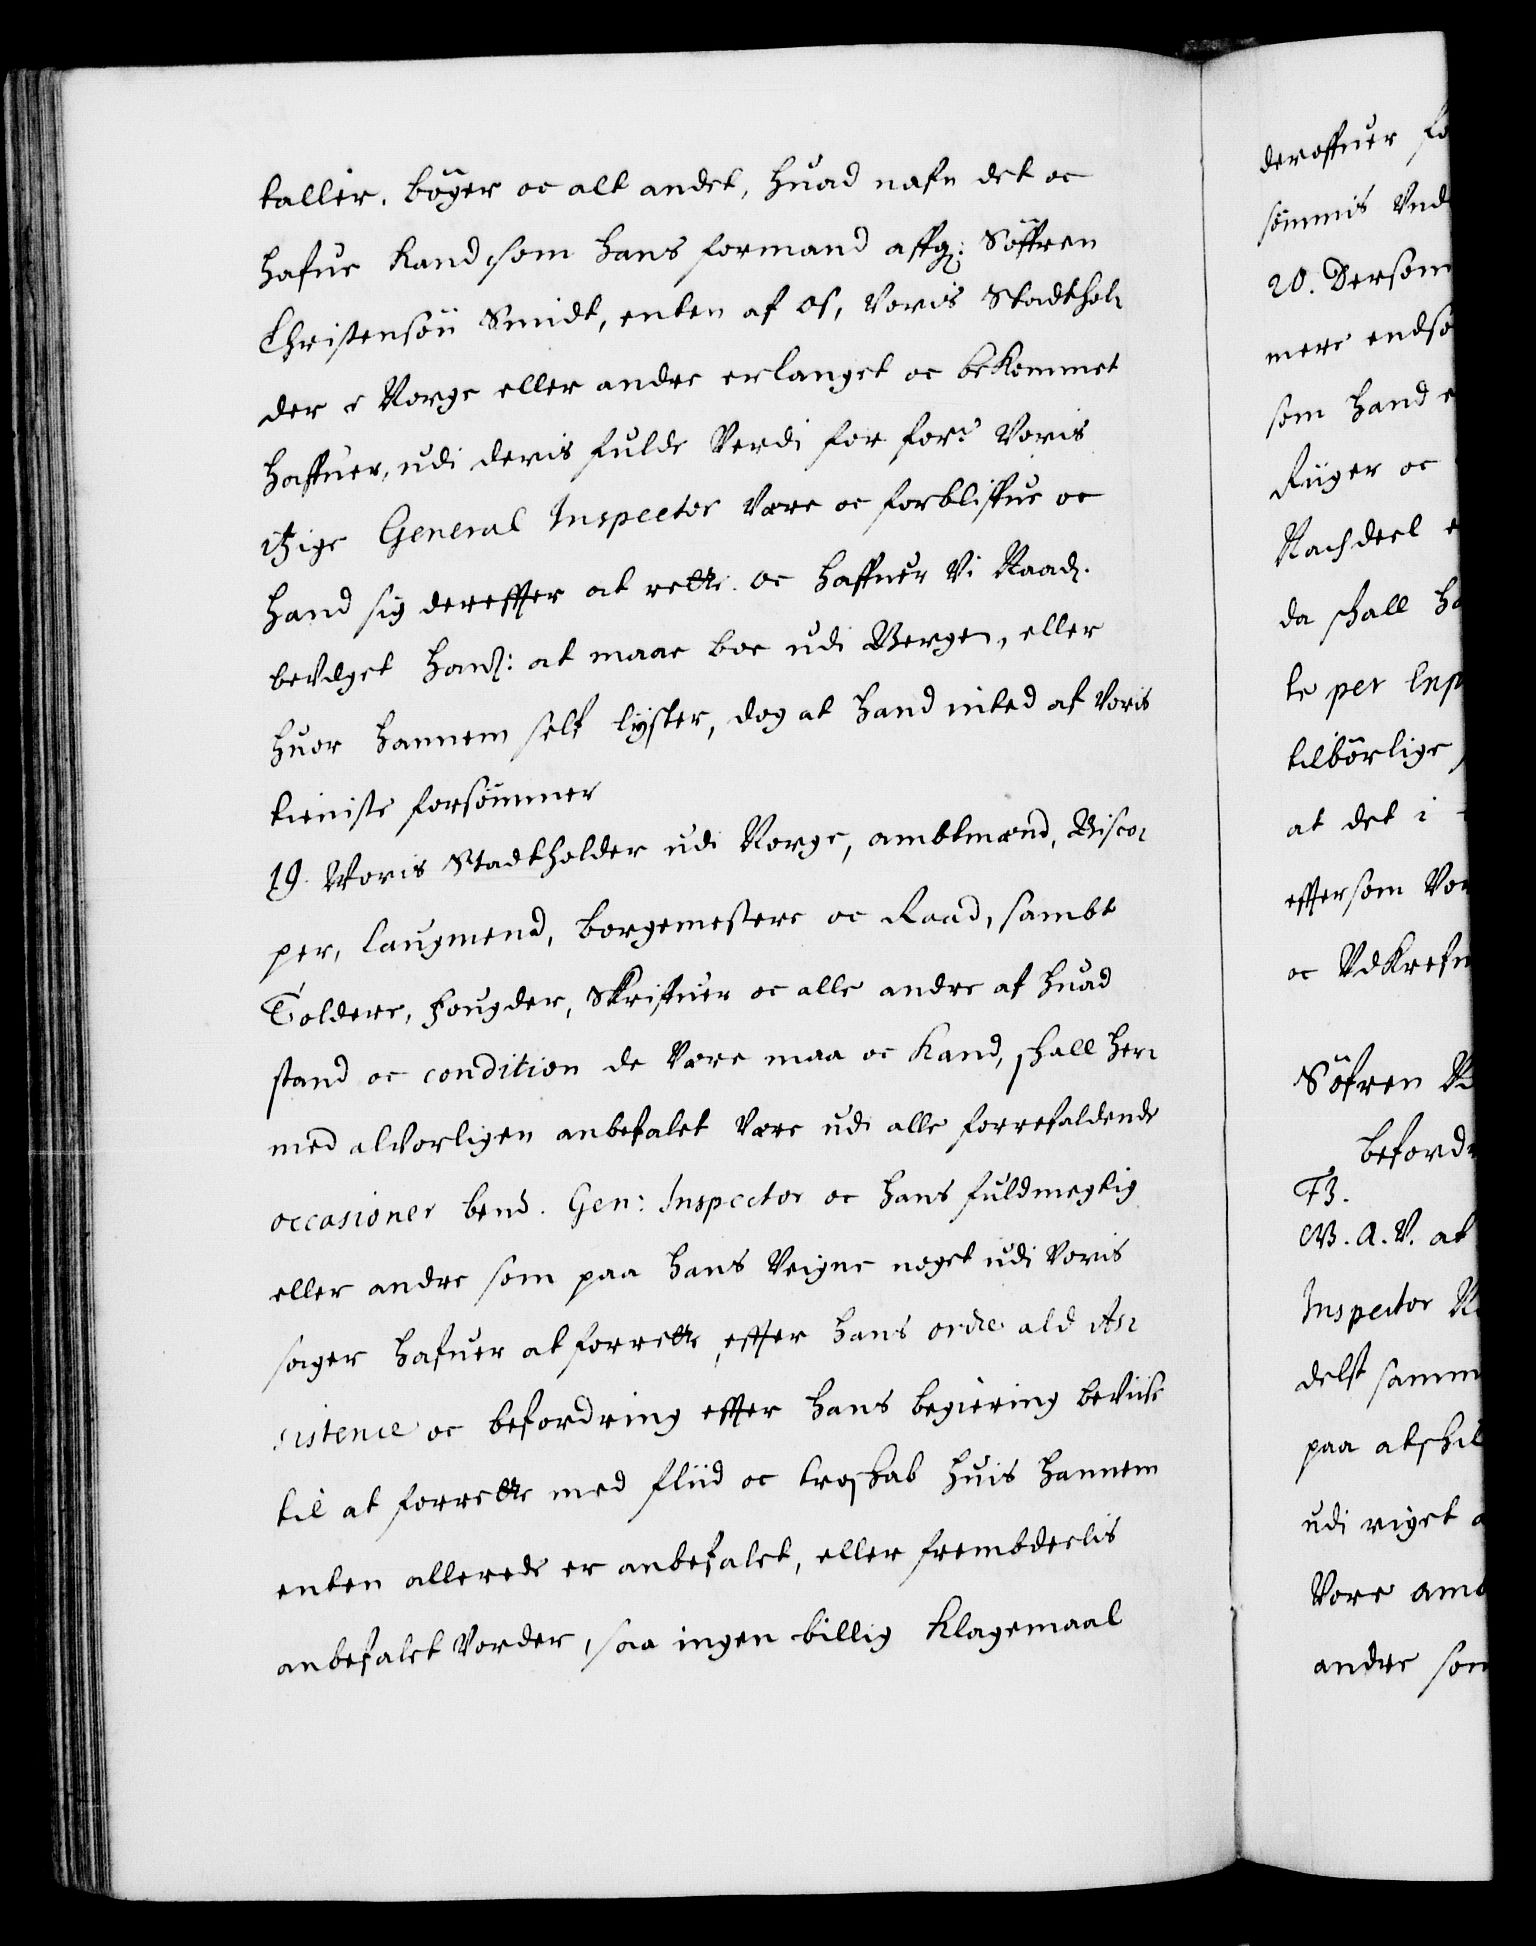 taller. bøger oc alt andet, huad nafn det oc
hafue kand, som hans formand affg: Søffren
Christensøn Smidt, enten af os, voris Stadthol-
der i Norge eller andre erlanget oc bekommet
haffuer, udi deris fulde verdi for for:ne voris
itzige General Inspector være oc forbliffue oc
hand sig dereffter at rette. oc haffuer vi Naad.
bevilget hans: at maae boe udi Bergen, eller
huor hannem self lyster, dog at hand inted af voris
tieniste forsømmer
19. Voris Stadtholder udi Norge, ambtmænd, Bisco-
per, laugmend, borgemestere oc Raad, sambt
Toldere, Fougder, Skrifuer oc alle andre af huad
stand oc condition de være maa oc kand, skall her-
med alvorligen anbefalet være udi alle forrefaldende
occasioner bend. Gen: Inspector oc hans fuldmegtig
eller andre som paa hans veigne noget udi voris
sager hafuer at forrette, effter hans ordre ald As-
sistence oc befordring effter hans begiering bevise
til at forrette med fliid oc troskab huis hannem
enten allerede er anbefalet, eller frembdeelis
anbefalet vorder, saa ingen billig klagemaal
deroffuer
sømmis
20. Dersom
mere
som hand
Riiger oc
Nachdeel
da skall
te per
tilbørlige
at det i
effersom
oc
Søfren
beford
F3.
V. A. V. at
Inspector
delst
paa
udi riget
Vore
andre